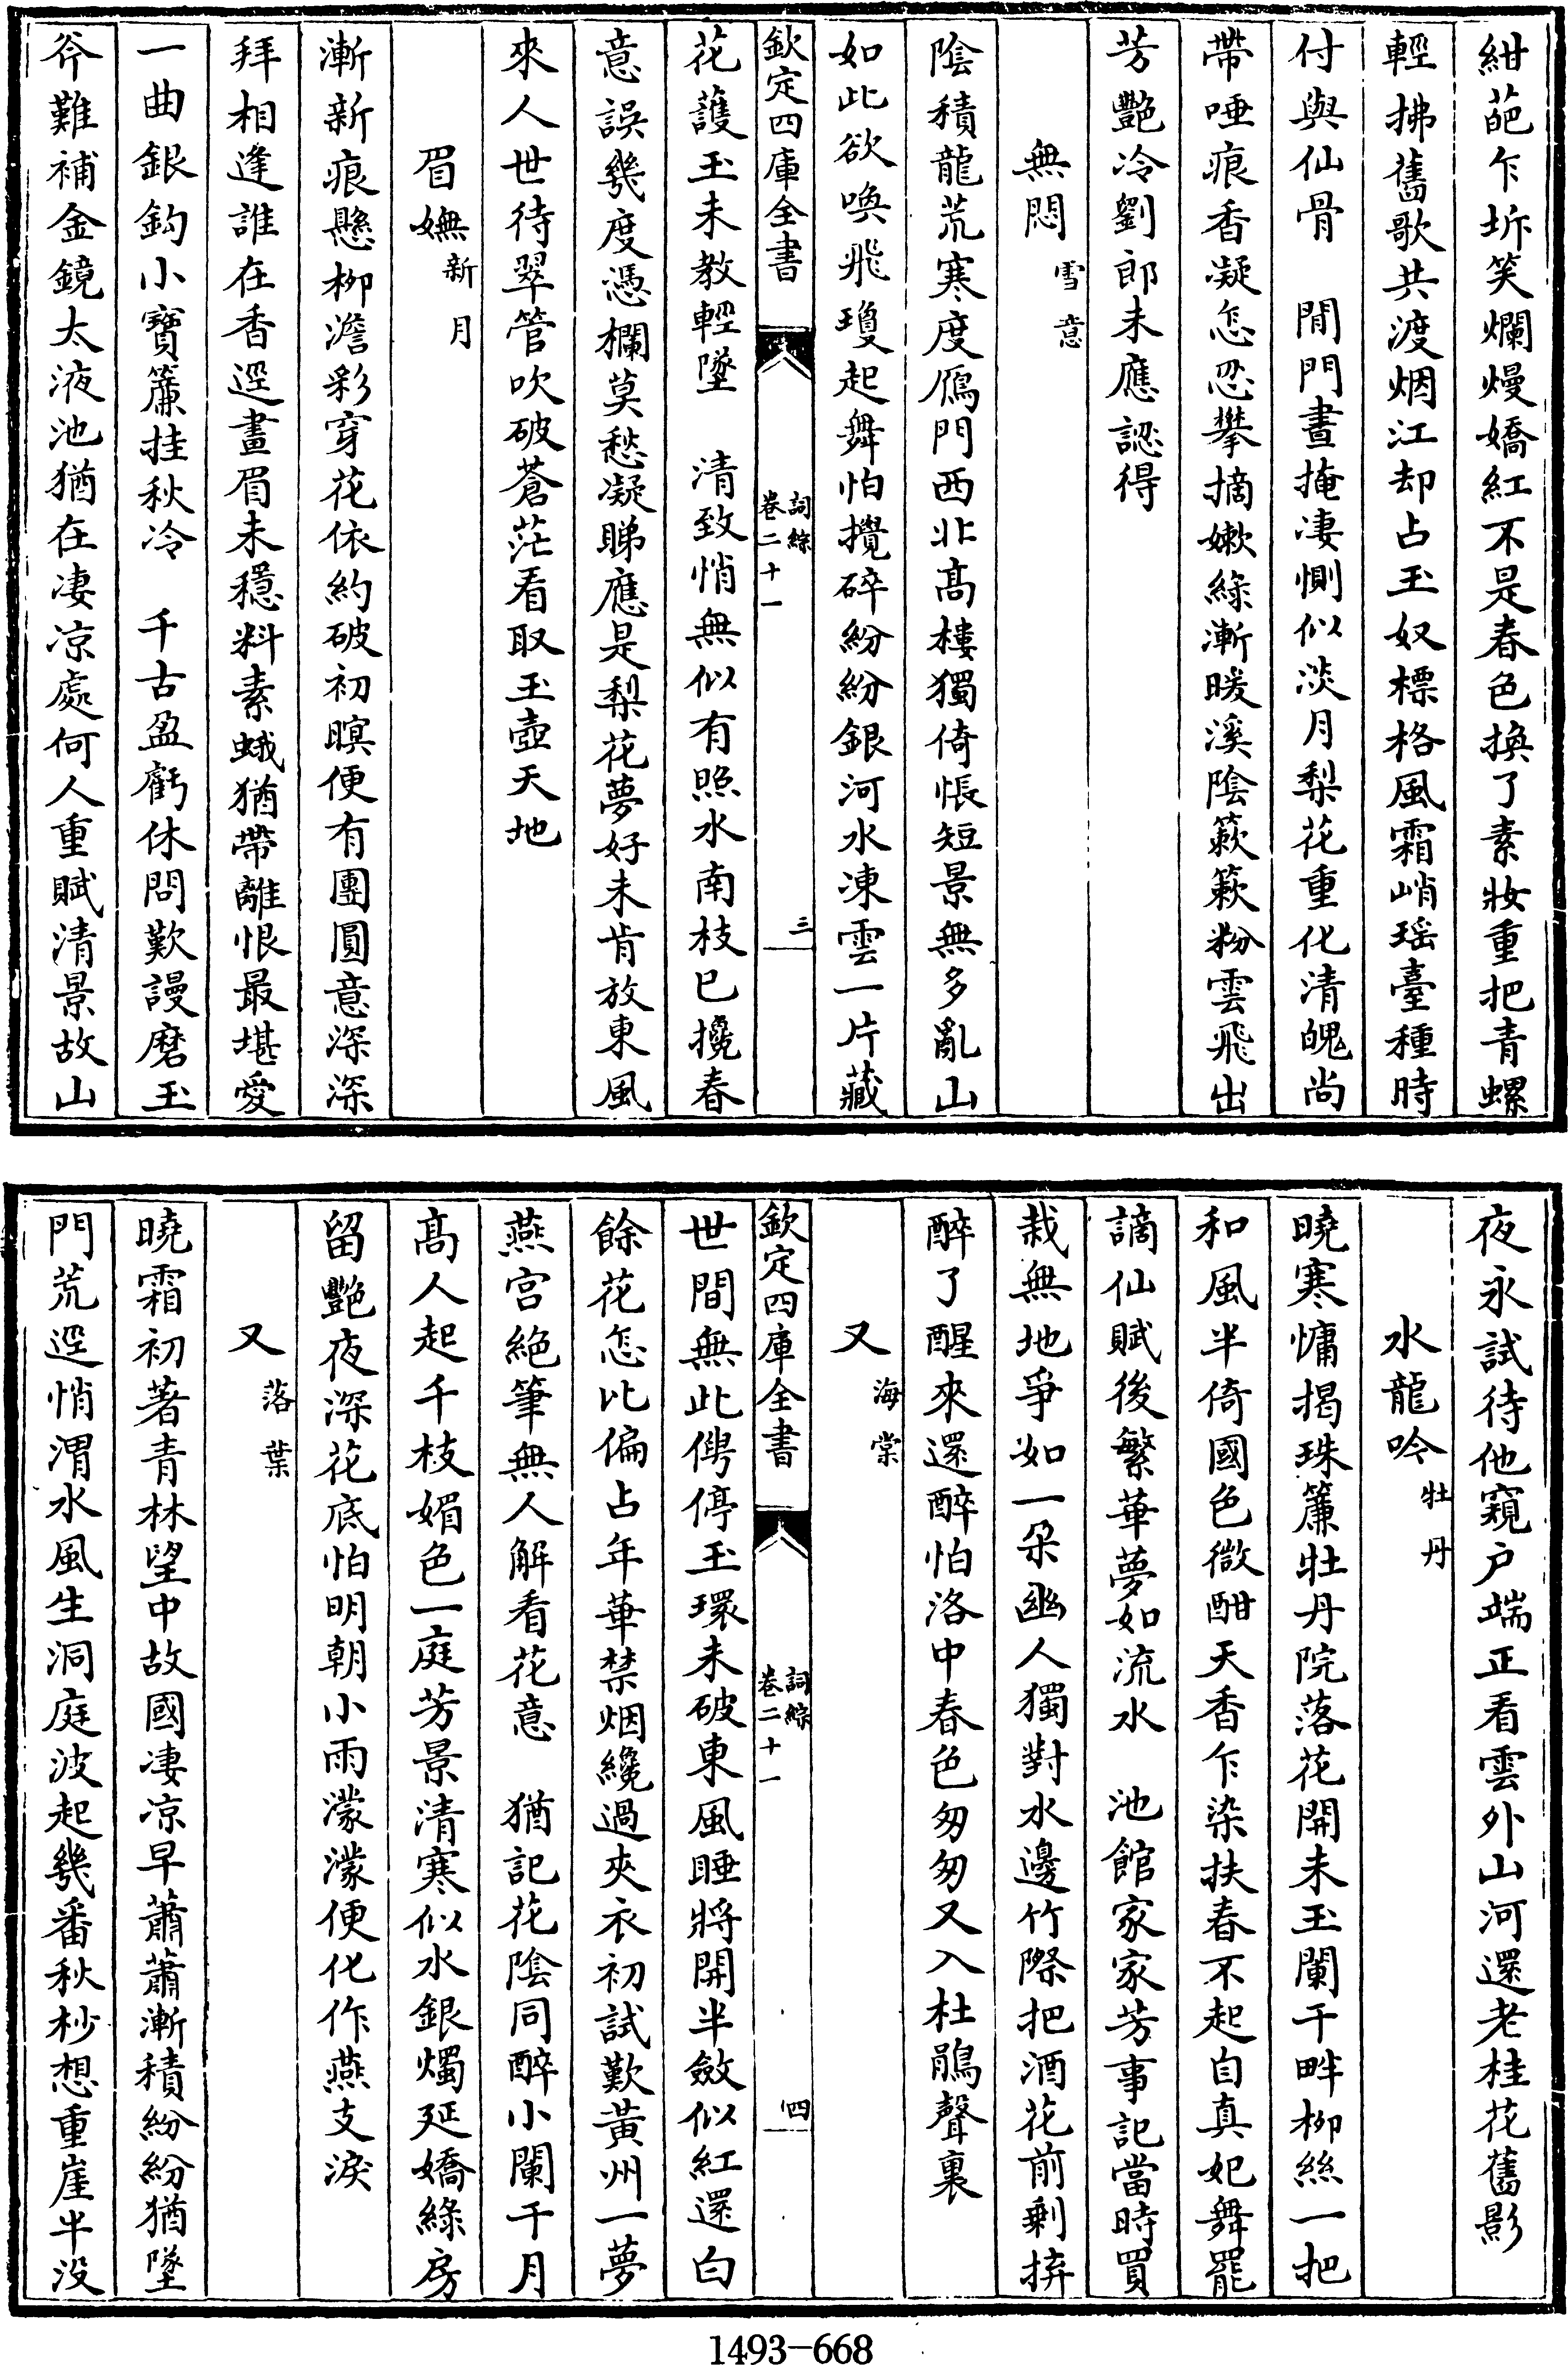 紺葩乍坼笑爛熳嬌紅不是春色換了素妝重把青螺
輕拂舊歌共渡烟江却占玉奴標格風霜峭瑶臺種時
付與仙骨　閒門晝掩凄惻似淡月梨花重化清魄尚
帶唾痕香凝怎忍攀摘嫩綠漸暖溪陰簌簌粉雲飛出
芳艷冷劉郎未應認得
無悶雪意
陰積龍荒寒度鴈門西北髙樓獨倚悵短景無多亂山
如此欲喚飛瓊起舞怕攪碎紛紛銀河水凍雲一片藏
欽定四庫全書　詞綜卷二十一　三
花護玉未教輕墜　清致悄無似有照水南枝已攙春
意誤幾度憑欄莫愁凝睇應是梨花夢好未肯放東風
來人世待翠管吹破蒼茫看取玉壺天地
眉嫵新月
漸新痕懸柳澹彩穿花依約破初暝便有團圓意深深
拜相逢誰在香逕畫眉未穩料素蛾猶帶離恨最堪愛
一曲銀鈎小寶簾挂秋冷　千古盈虧休問歎謾磨玉
斧難補金鏡太液池猶在凄凉處何人重賦清景故山
夜永試待他窺户端正看雲外山河還老桂花舊影
水龍吟牡丹
曉寒慵揭珠簾牡丹院落花開未玉闌干畔柳絲一把
和風半倚國色微酣天香乍染扶春不起自真妃舞罷
謫仙賦後繁華夢如流水　池館家家芳事記當時買
栽無地爭如一朵幽人獨對水邊竹際把酒花前剩拚
醉了醒來還醉怕洛中春色匆匆又入杜鵑聲裏
又海棠
欽定四庫全書　詞綜卷二十一　四
世間無此俜停玉環未破東風睡將開半斂似紅還白
餘花怎比偏占年華禁烟纔過夾衣初試歎黄州一夢
燕宫絶筆無人解看花意　猶記花陰同醉小闌干月
髙人起千枝媚色一庭芳景清寒似水銀燭延嬌綠房
留艷夜深花底怕明朝小雨濛濛便化作燕支淚
又落葉
曉霜初著青林望中故國凄凉早蕭蕭漸積紛紛猶墜
門荒逕悄渭水風生洞庭波起幾番秋杪想重崖半没
1493-668